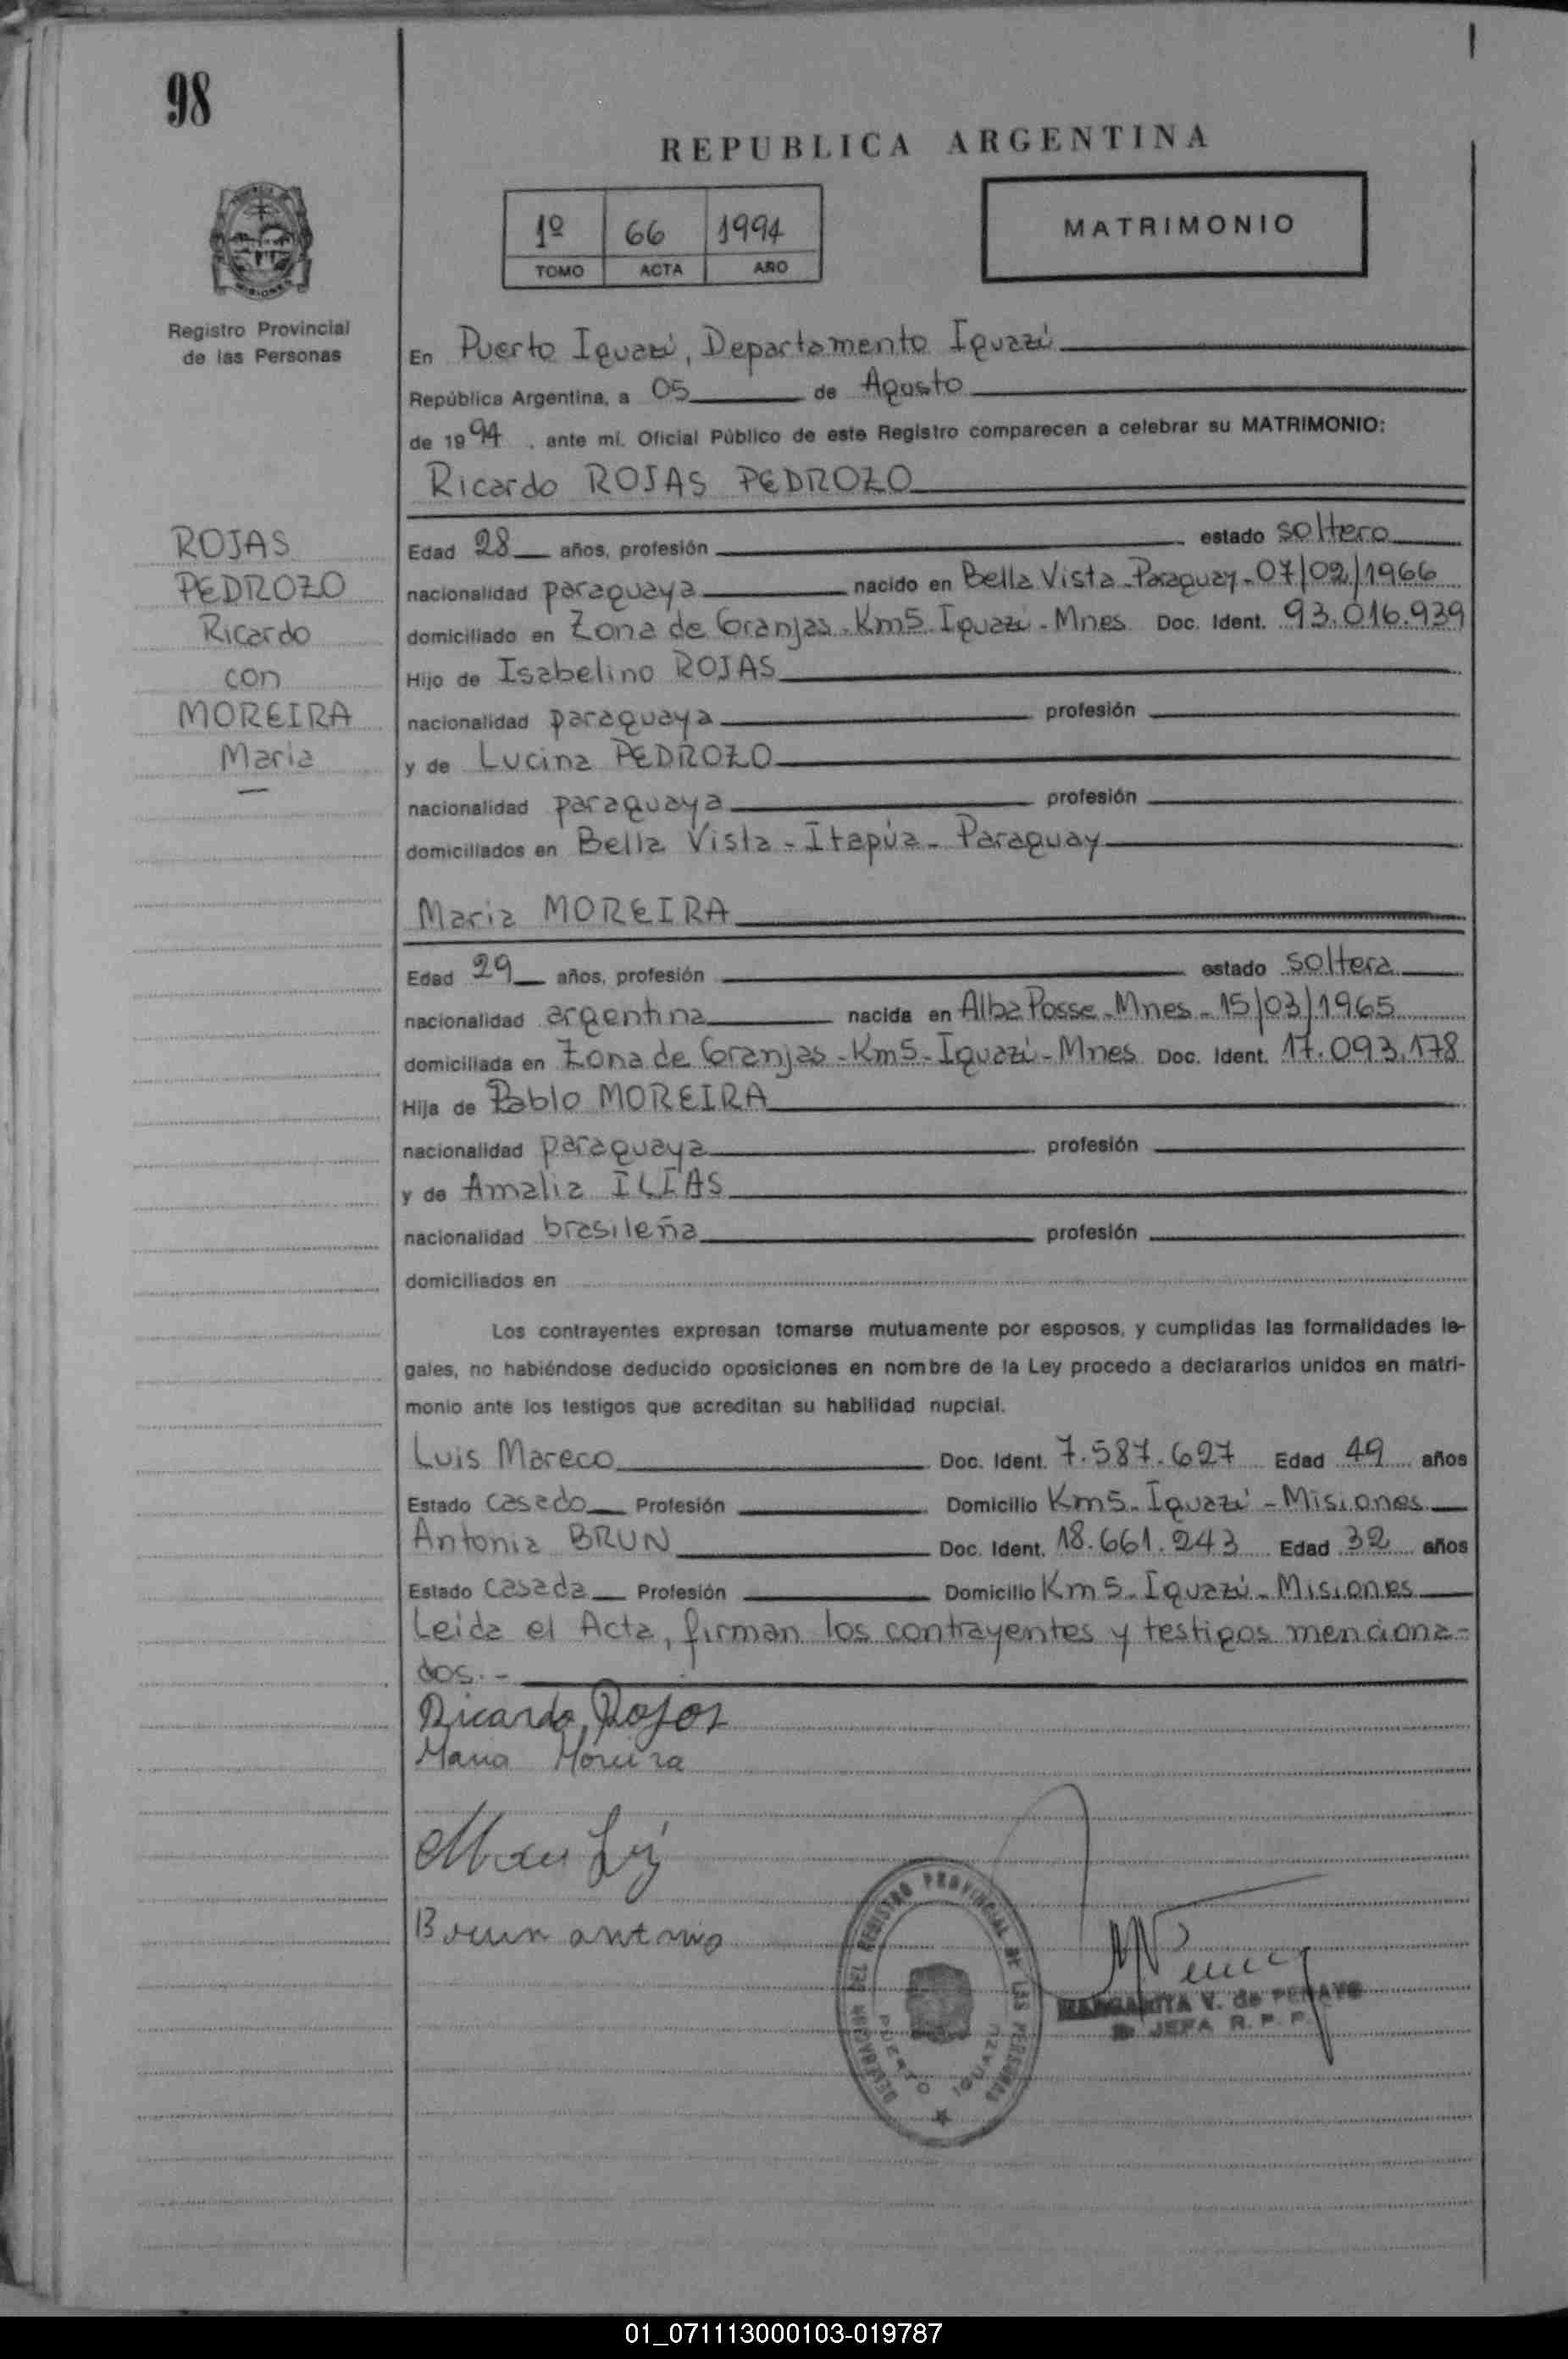 98
REPUBLICA ARGENTINA
1º 66 1994
TOMO ACTA AÑO
MATRIMONIO
MISIONES
Registro Provincial
de las Personas
En Puerto Iguazú, Departamento Iguazú
República Argentina, a 05 de Agosto
de 1994, ante mi. Oficial Público de este Registro comparecen a celebrar su MATRIMONIO:
Ricardo ROJAS PEDROZO
ROJAS
PEDROZO
Ricardo
con
MOREIRA
Maria
Edad 28 años, profesión estado soltero
nacionalidad paraguaya nacido en Bella Vista - Paraguay - 07/02/1966
domiciliado en Zona de Granjas - Km5 - Iguazú - Mnes Doc. Ident. 93.016.939
Hijo de Isabelino ROJAS
nacionalidad paraguaya profesión
y de Lucina PEDROZO
nacionalidad paraguaya profesión
domiciliados en Bella Vista - Itapúa - Paraguay
Maria MOREIRA
Edad 29 años, profesión estado soltera
nacionalidad argentina nacida en Alba Posse - Mnes - 15/03/1965
domiciliada en Zona de Granjas - Km5 - Iguazú - Mnes Doc. Ident. 17.093.178
Hija de Pablo MOREIRA
nacionalidad paraguaya profesión
y de Amalia ILIAS
nacionalidad brasileña profesión
domiciliados en
Los contrayentes expresan tomarse mutuamente por esposos, y cumplidas las formalidades le-
gales, no habiéndose deducido oposiciones en nombre de la Ley procedo a declararlos unidos en matri-
monio ante los testigos que acreditan su habilidad nupcial.
Luis Mareco Doc. Ident. 7.587.627 Edad 49 años
Estado casado Profesión Domicilio Km5 - Iguazú - Misiones
Antonia BRUN Doc. Ident. 18.661.243 Edad 32 años
Estado casada Profesión Domicilio Km5 - Iguazú - Misiones
Leida el Acta, firman los contrayentes y testigos menciona-
dos. -
Ricardo Rojas
Maria Moreira
Brun antonia
DEL REGISTRO PROVINCIAL DE LAS PERSONAS
PUERTO IGUAZU
MARGARITA V. de PENAYO
JEFA R. P. P.
01_071113000103-019787